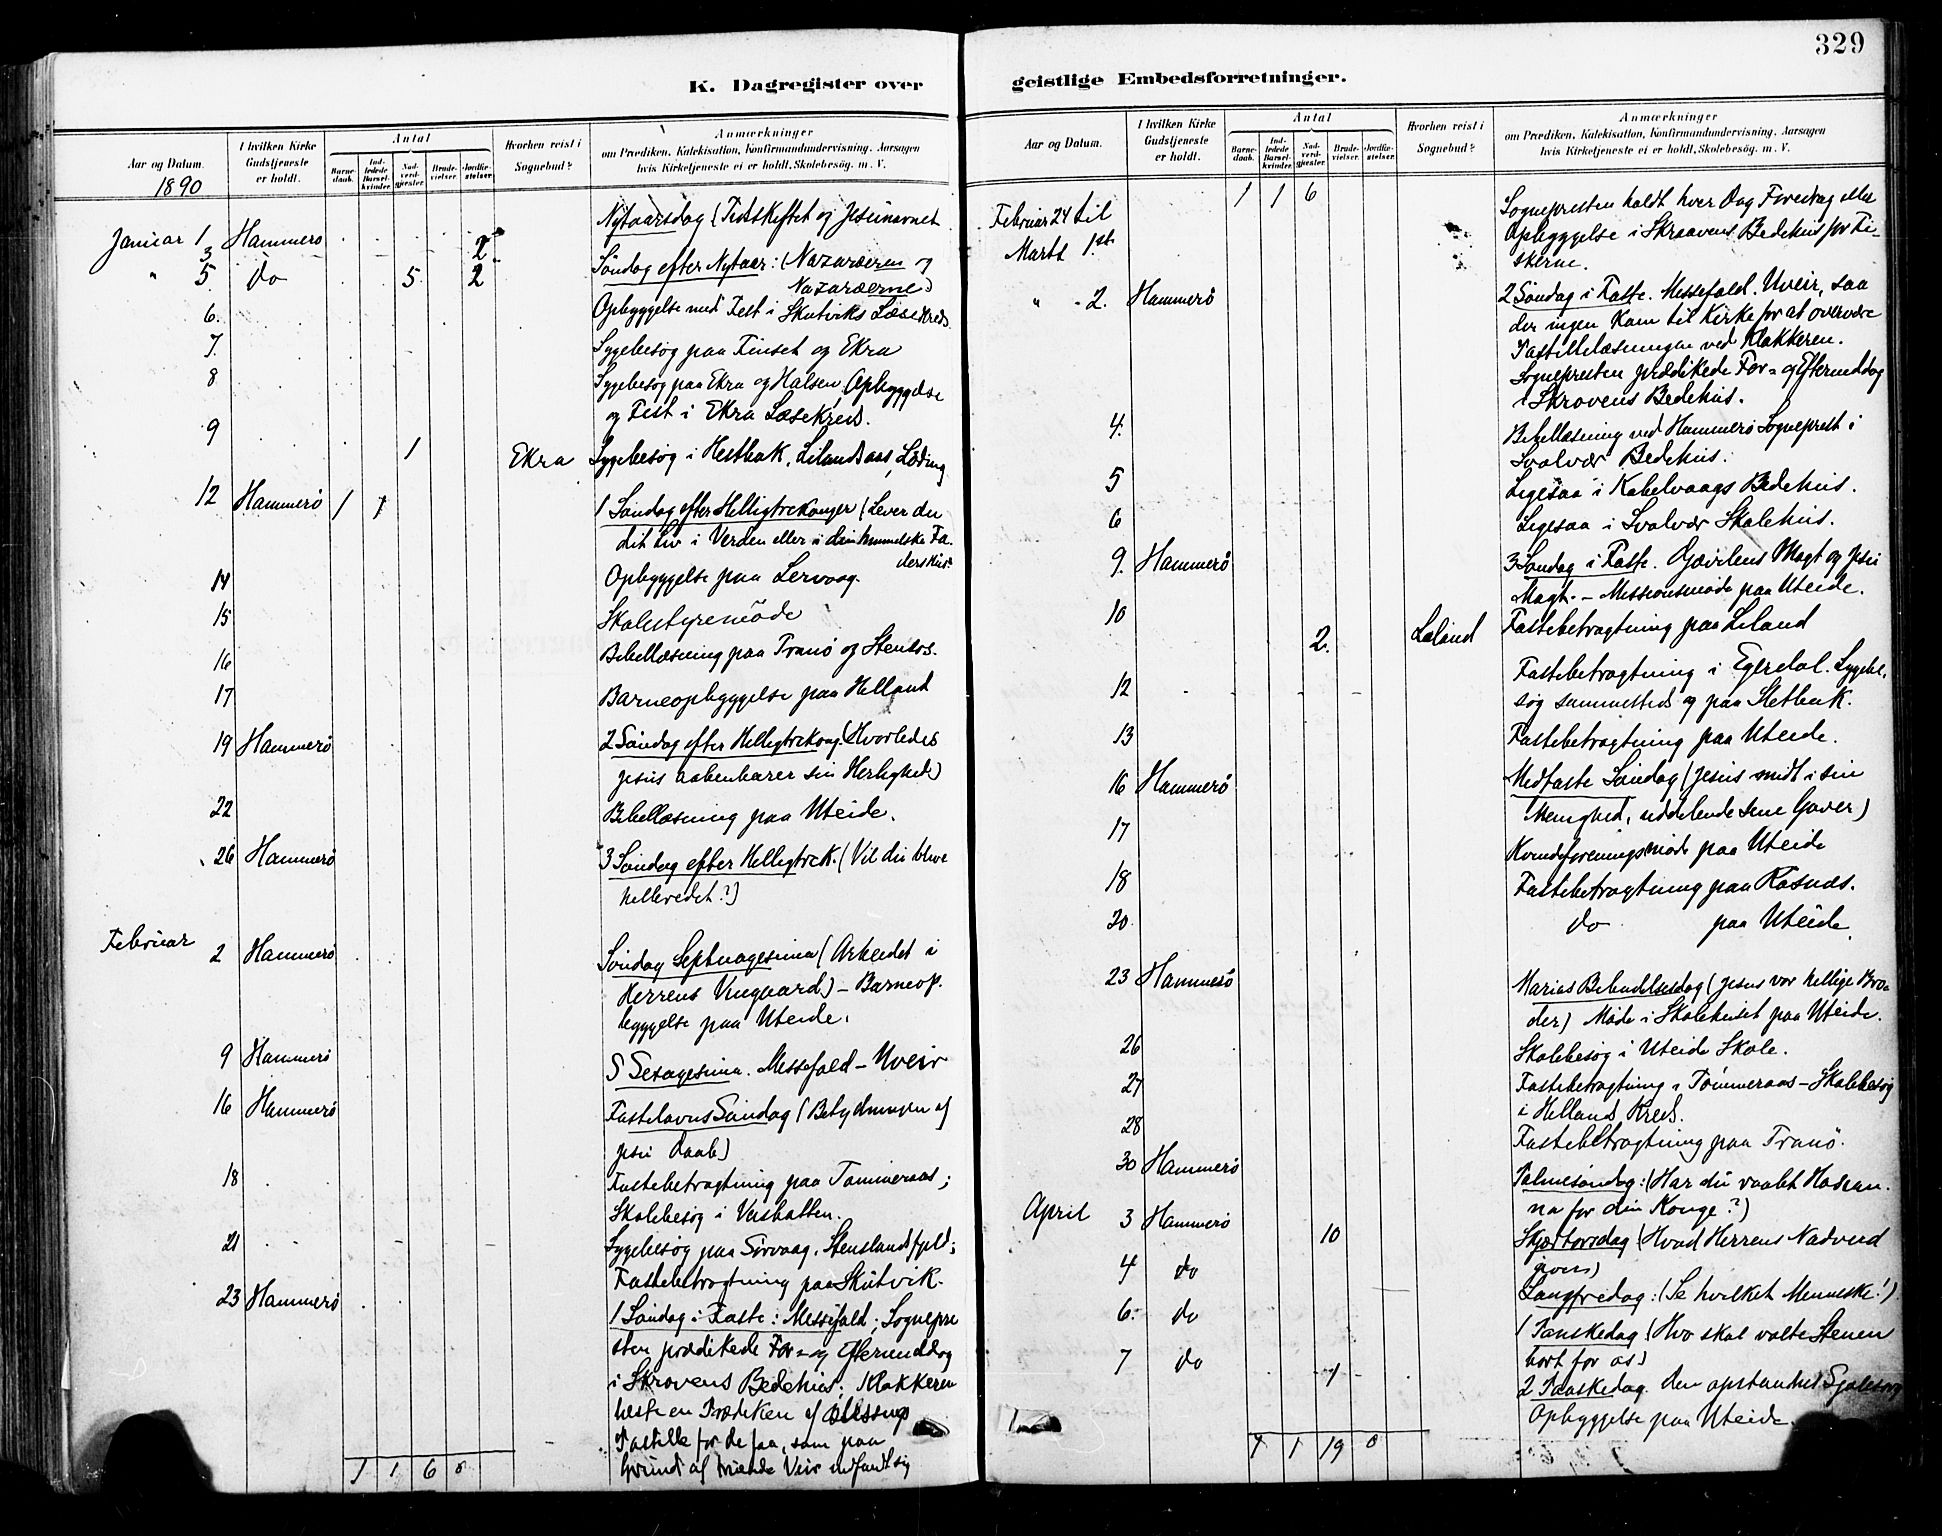 329
K. Dagregister over
Aar og Datum.
1890
I hvilken Kirke
Gudstjeneste
er holdt.
Antal
Barne-
daab.
Ind-
ledede
Barsel-
kvinder.
Nad-
verd-
gjester.
Brude-
vielser.
Jordfæ-
stelser.
Hvorhen reist i
Sognebud?
Anmærkninger
om Prædiken, Katekisation, Konfirmandundervisning, Aarsagen
hvis Kirketjeneste ei er holdt, Skolebesøg, m. V.
Januar 1 Hammerö Nytaarsdag (Tidsskiftet og Jesunavnet
3 2
" 5 do 5 2 Søndag efter Nytaar: (Nazaræeren og
Nazaræerne)
6. Opbyggelse med Fest i Skutviks Læsekreds
7. Sygebesøg paa Finset og Ekra
8 Sygebesøg paa Ekra og Halsen, Opbyggelse
og Fest i Ekra Læsekreds.
9 1 Ekra Sygebesøg i Hestbak, Lilandsaas, Löding
12 Hammerö 1 1 1 Søndag efter Helligtrekonger (Lever du
dit Liv i Verden eller i din himmelske Fa-
dershus?
14 Opbyggelse paa Lervaag.
15 Skolestyremöde
16 Bibellæsning paa Tranö og Stenlos.
17 Barneopbyggelse paa Helland
19 Hammerö 2 Søndag efter Helligtrekong. (Hvorledes
Jesus aabenbarer sin Herlighed)
22 Bibellæsning paa Uteide.
26 Hammerö 3 Søndag efter Helligtrek. (Vil du blive
helbredet?)
Februar 2 Hammerö Søndag Septuagesima (Arbeidet i
Herrens Vingaard) – Barneop-
byggelse paa Uteide.
9 Hammerö S Sexagesima. Messefald – Uveir
16 Hammerö Fastelavns Søndag (Betydningen af
Jesu Daab)
18 Fastebetragtning paa Tømmeraas;
Skolebesøg i
21 Sygebesøg paa Sörvaag, Stenslandsfjeld;
Fastebetragtning paa Skutvik.
23 Hammerö 1 Søndag i Faste: Messefald; Sognepre
sten prædikede For- og Eftermiddag
i Skrovens Bedehus; Klokkeren
læste en Prædiken af Jessens
Postille for de faa, som paa
Grund af Veir indfandt sig
1 1 6 0
geistlige Embedsforretninger.
Aar og Datum.
I hvilken Kirke
Gudstjeneste
er holdt.
Antal
Barne-
daab.
Ind-
ledede
Barsel-
kvinder.
Nad-
verd-
gjester.
Brude-
vielser.
Jordfæ-
stelser.
Hvorhen reist i
Sognebud?
Anmærkninger
om Prædiken, Katekisation, Konfirmandundervisning, Aarsagen
hvis Kirketjeneste ei er holdt, Skolebesøg, m. V.
1 1 6
Februar 24 til Sognepresten holdt hver Dag Foredrag eller
Marts 1st. Opbyggelse i Skraavens Bedehus for Fi-
skerne.
" 2. Hammerö 2 Søndag i Faste. Messefald. Uveir, saa
der ingen kom til Kirke for at overvære
Postillelæsningen ved Klokkeren.
Sognepresten prædikede For- og Eftermiddag
i Skrovens Bedehus.
4. Bibellæsning ved Hammerö Sogneprest i
Svolvær Bedehus.
5 Ligesaa i Kabelvaags Bedehus.
6 Ligesaa i Svolvær Skolehus.
9. Hammerö 3 Søndag i Faste. Djævelens Magt og Jesu
Magt. – Missionsmöde paa Uteide.
10 2. Leland Fastebetragtning paa Leland
12 Fastebetragtning i Egredal. Sygebe-
søg sammesteds og paa Sletbak.
13 Fastebetragtning paa Uteide.
16 Hammerö Midfaste Søndag (Jesus midt i sin
Menighed, uddelende sine Gaver)
17 Kvindeforeningsmöde paa Uteide
18 Fastebetragtning paa Rosnæs.
20 do paa Uteide
23 Hammerö Marias Bebudelsesdag (Jesus vor hellige Bro-
der) Möde i Skolehuset paa Uteide.
26 Skolebesøg i Uteide Skole.
27 Fastebetragtning i Tömmeraas – Skolebesøg
i Hellands Kreds.
28 Fastebetragtning paa Tranö.
30 Hammerö Palmesøndag: (Har du raabt Hosian-
na for din Konge?)
April 3 Hammerö 10 Skjærtorsdag (Hvad Herrens Nadverd
giver)
4 do Langfredag: (Se hvilket Menneske!)
6 do 1 Paaskedag (Hvo skal vælte Stenen
bort for os)
7 do 1 2 Paaskedag. Den opstandne Sjælesørg
Opbyggelse paa Uteide.
1 1 19 0